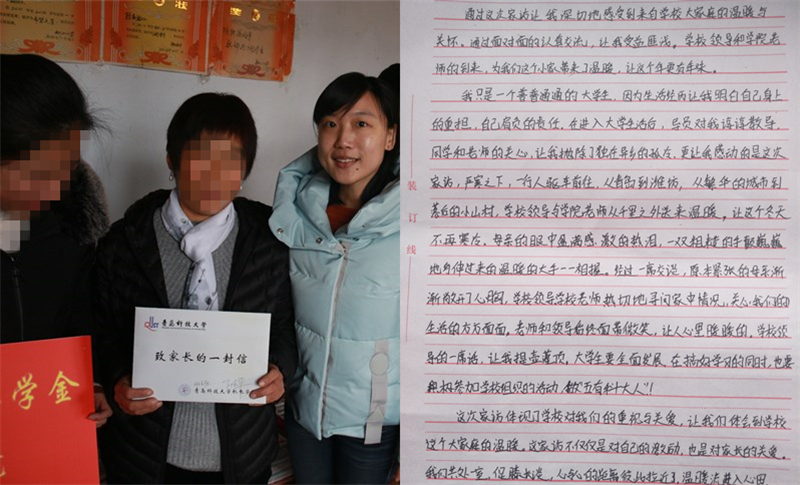 学金
青岛科技大学
致家长的一封信
装订线
通过这次家访让我深切地感受到来自学校大家庭的温暖与
关怀，通过面对面的认真交流，让我受益匪浅。学校领导和学院老
师的到来，为我们这个小家带来了温暖，让这个年更有年味。
我只是一个普普通通的大学生，因为生活经历让我明白自己身上
的重担，自己肩负的责任。在进入大学生活后，导员对我谆谆教导，
同学和老师的关心，让我抛除了独在异乡的孤冷。更让我感动的是这次
家访，严寒之下，一行人驱车前往，从青岛到潍坊，从繁华的城市到
落后的小山村，学校领导与学院老师从千里之外送来温暖，让这个冬天
不再寒冷。母亲的眼中是满感激的热泪，一双粗糙的手颤巍巍
地与伸过来的温暖的大手一一相握。经过一席交谈，原本紧张的母亲渐
渐敞开了心胸，学校领导学校老师热切地寻问家中情况，关心我们的
生活的方方面面。老师和领导始终面带微笑，让人心里暖暖的。学校领
导的一席话，让我提壶灌顶，大学生要全面发展，在搞好学习的同时，也要
积极参加学校组织的活动，做"五有科大人"！
这次家访体现了学校对我们的重视与关爱，让我们体会到学校
这个大家庭的温暖，这家访不仅仅是对自己的激励，也是对家长的关爱。
我们共处一室，促膝长谈，心与心的距离彼此拉近了，温暖流进入心田